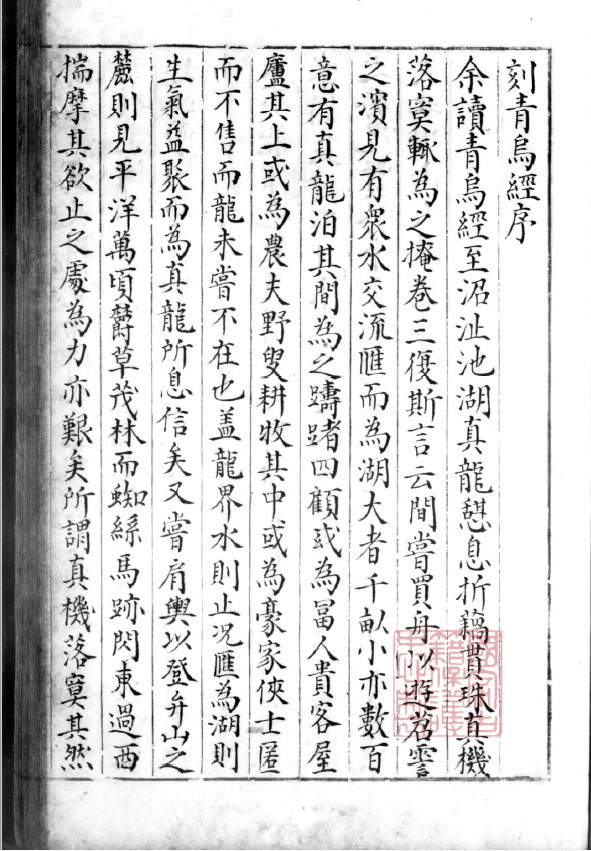 刻青烏經序
余讀青烏經至沼沚池湖真龍憩息折藕貫珠真機
落寞輒為之掩卷三復斯言云間嘗買舟以遊苕霅
之濱見有衆水交流匯而為湖大者千畝小亦數百
意有真龍泊其間為之躊躇四顧或為冨人貴客屋
廬其上或為農夫野叟耕牧其中或為豪家俠士匿
而不售而龍未嘗不在也盖龍界水則止况匯為湖則
生氣益聚而為真龍所息信矣又嘗肩輿以登弁山之
麓則見平洋萬頃欝草茂林而蜘絲馬跡閃東過西
揣摩其欲止之處為力亦艱矣所謂真機落寞其然